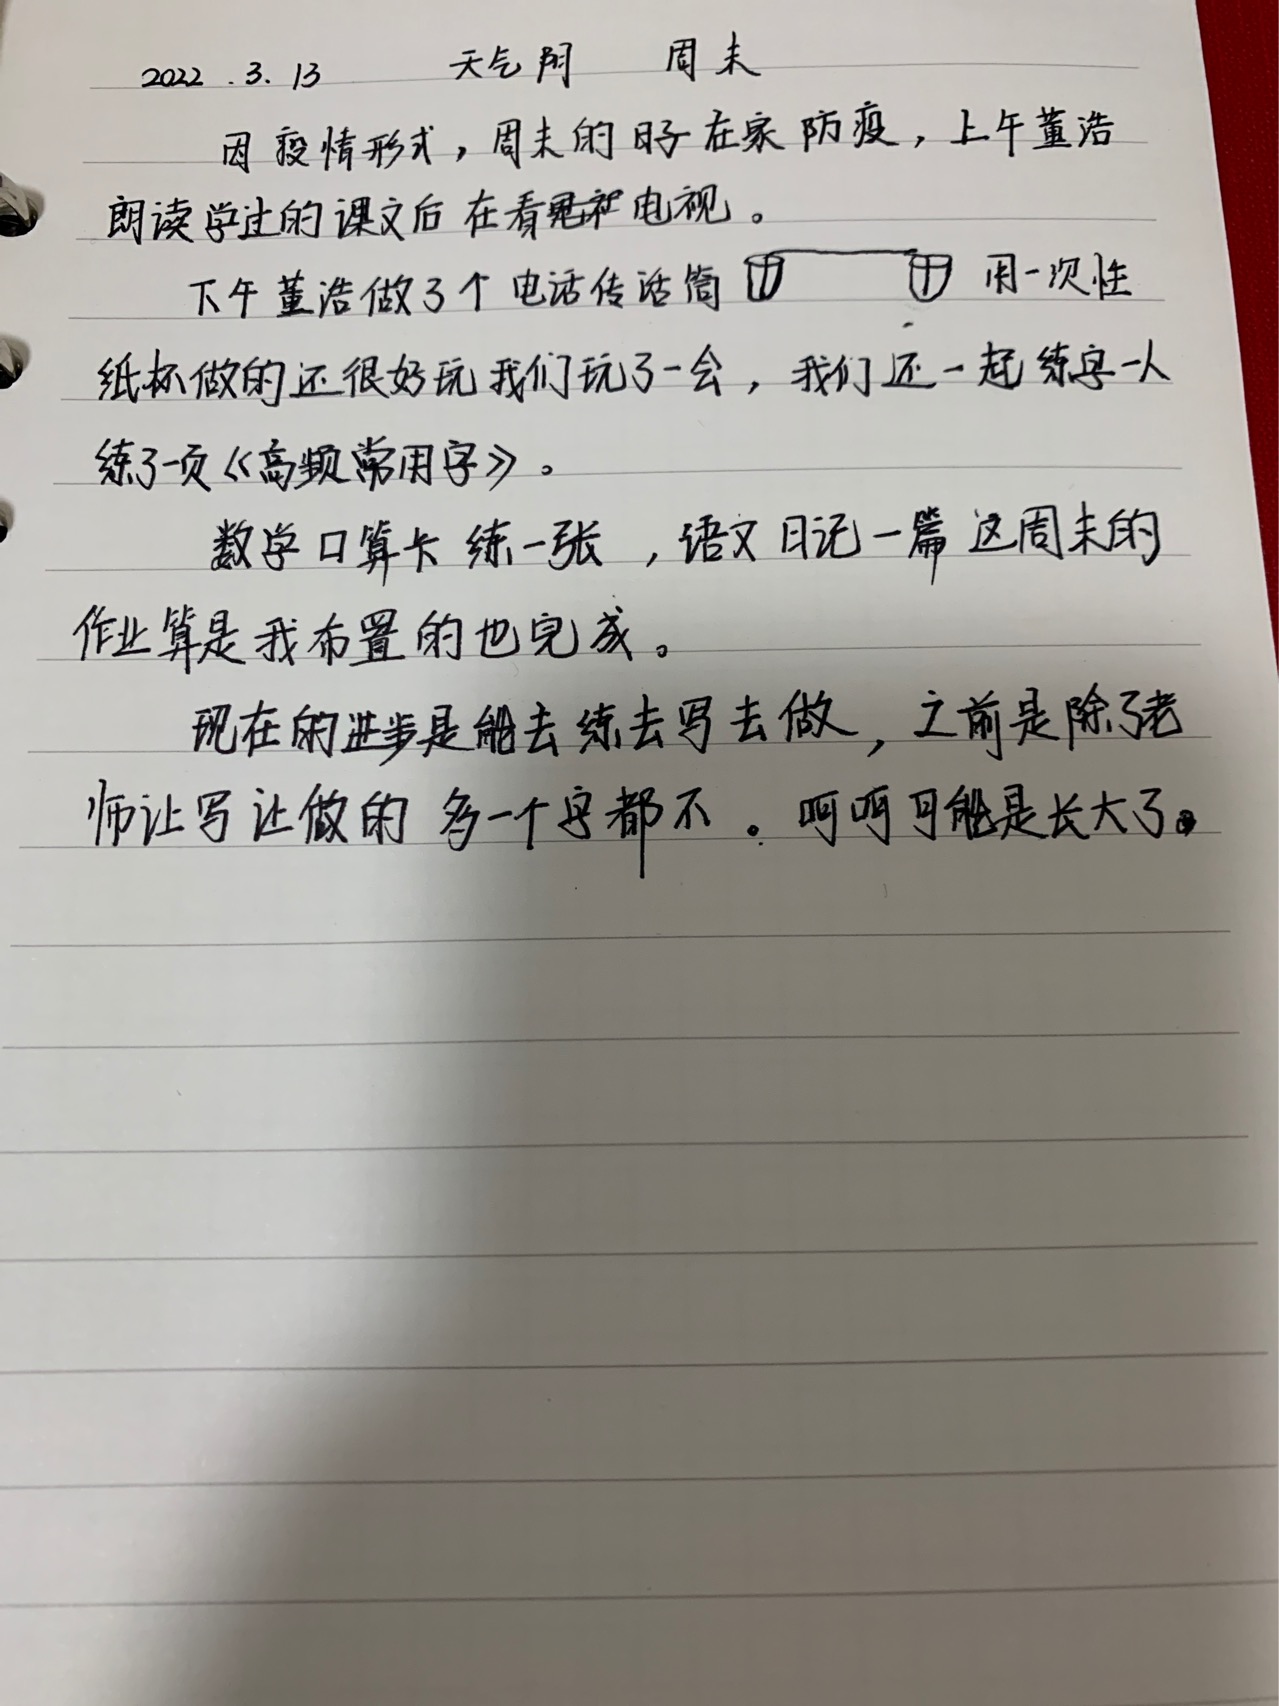 2022.3.13 天气阴 周末
因疫情形式，周末的日子在家防疫，上午董浩
朗读学过的课文后在看电视。
下午董浩做了个电话传话筒 用一次性
纸杯做的还很好玩我们玩了一会，我们还一起练字一人
练了一页《高频常用字》。
数学口算卡练一张，语文日记一篇这周末的
作业算是我布置的也完成。
现在的进步是能去练去写去做，之前是除了老
师让写让做的多一个字都不。呵呵可能是长大了。